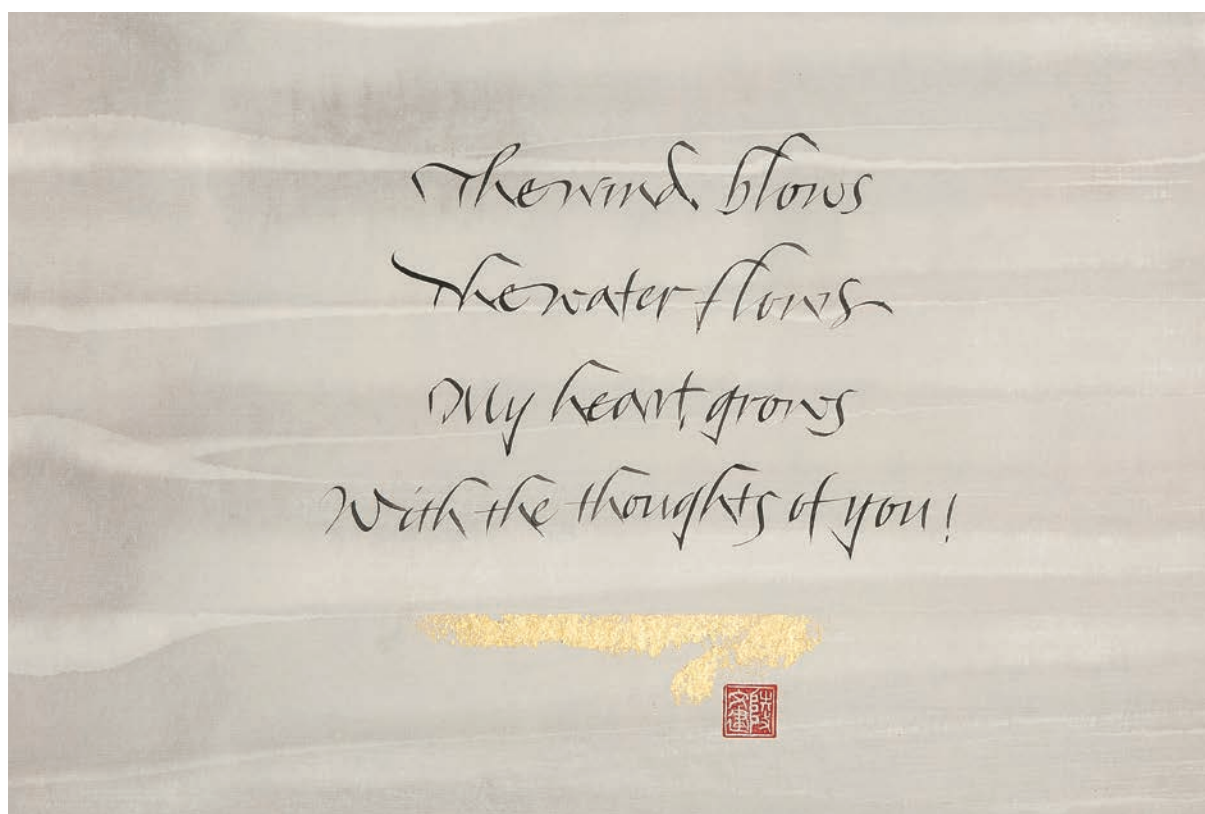 The wind blows
The water flows
My heart grows
With the thoughts of you!